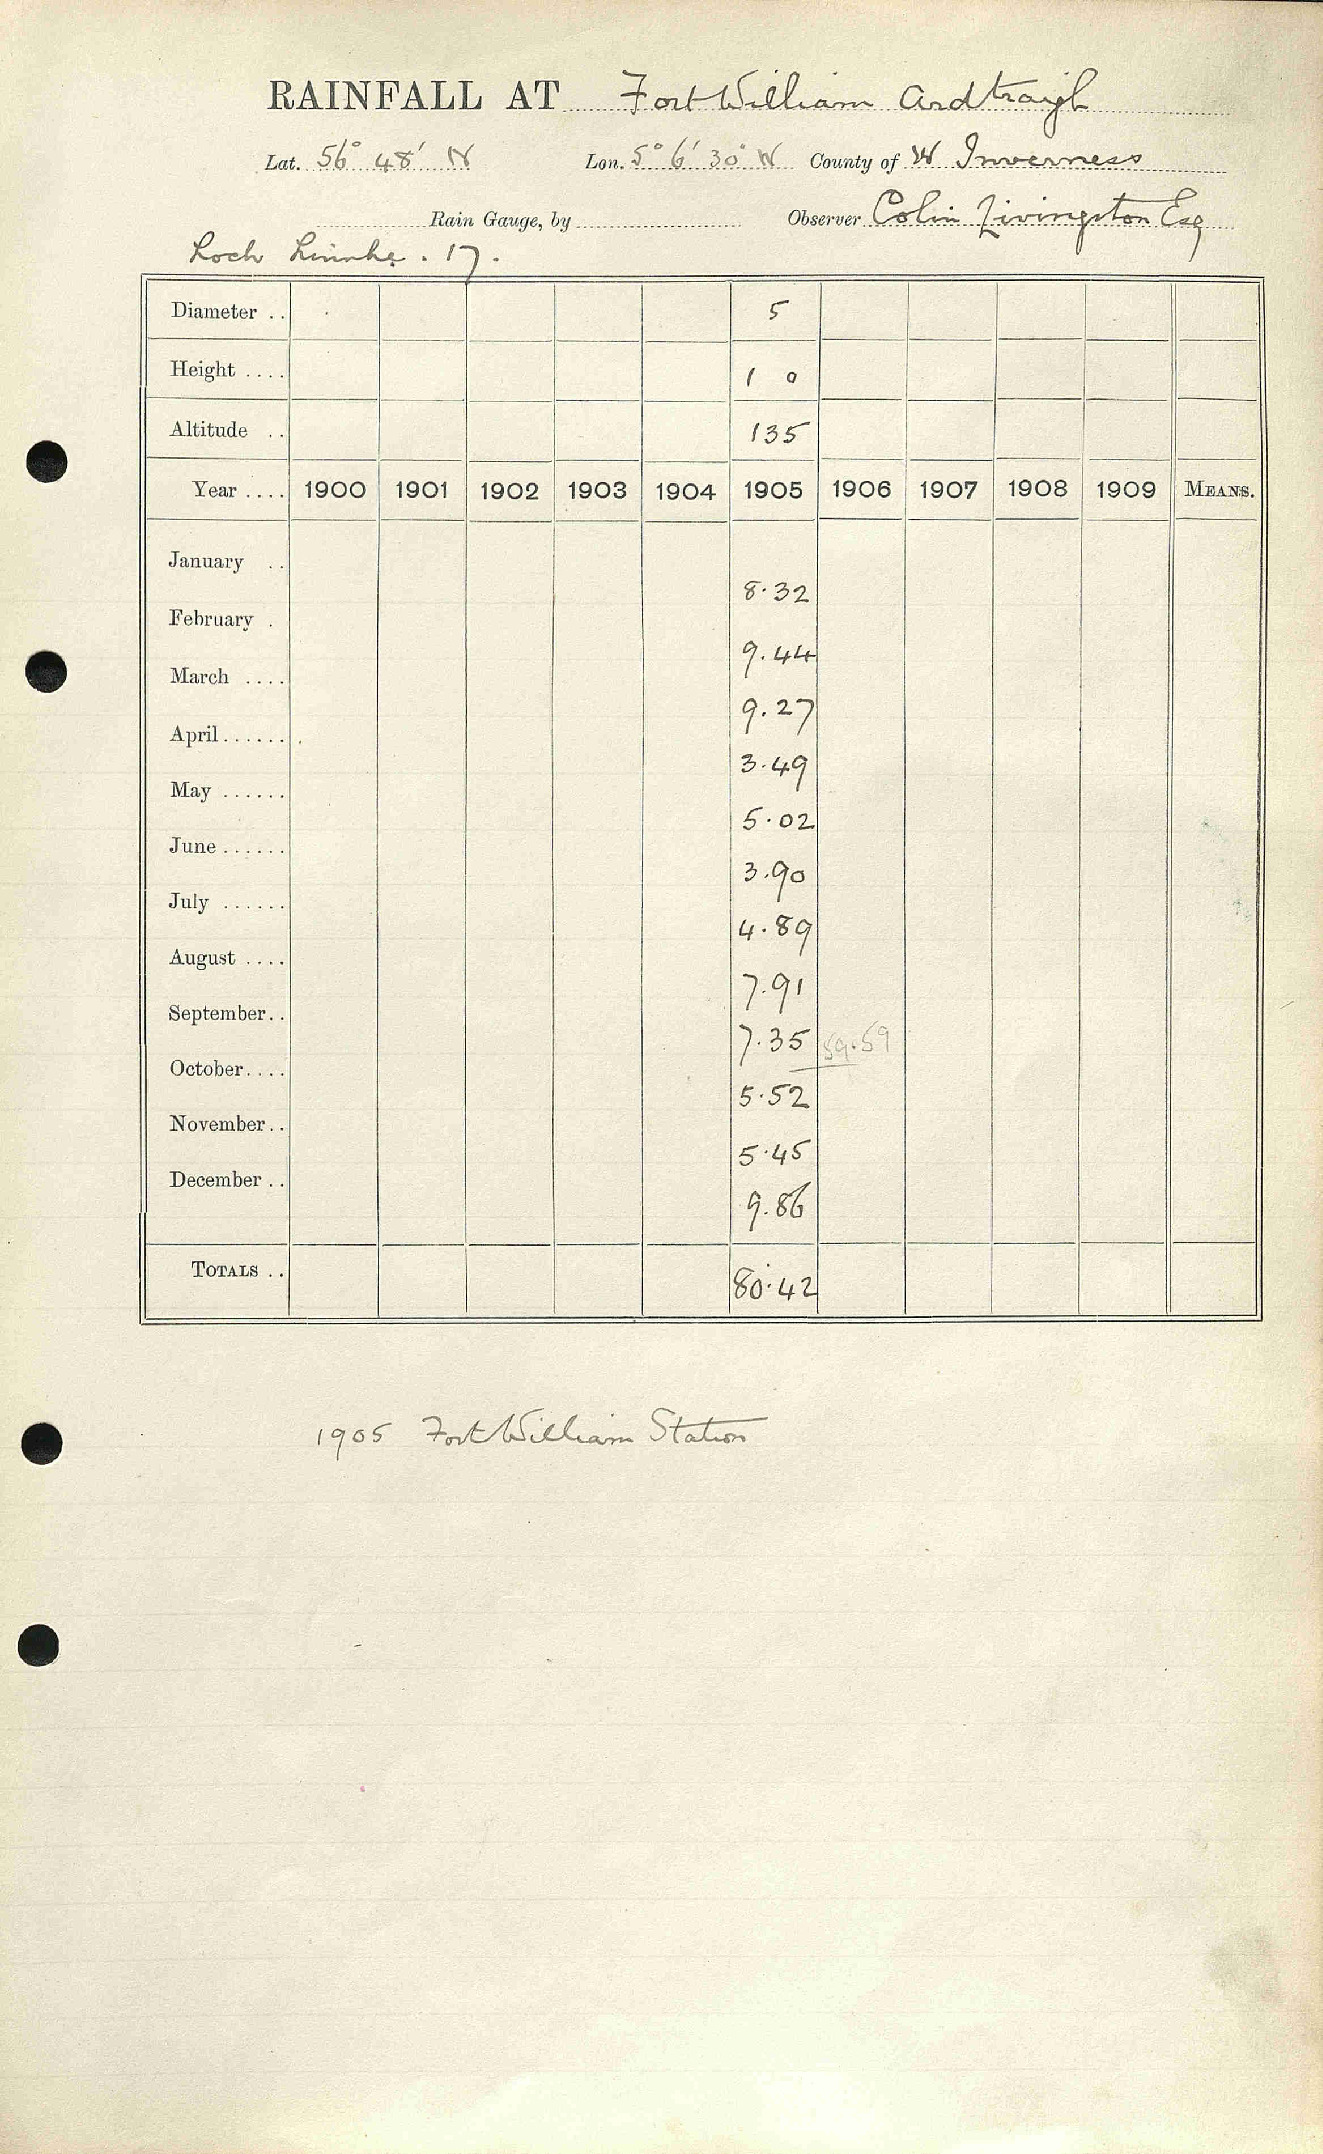 RAINFALL AT Fort William Ardtraigh
Lat. 56° 48' N Lon. 5° 6' 30" W County of W Inverness
Rain Gauge, by Observer Colin Livingston Esq
Loch Linnhe. 17.
Diameter .. 5
Height .... 1 0
Altitude .. 135
Year .... 1900 1901 1902 1903 1904 1905 1906 1907 1908 1909 MEANS.
January ..
8.32
February .
9.44
March ....
9.27
April......
3.49
May ......
5.02
June ......
3.90
July ......
4.89
August ....
7.91
September..
7.35 59.59
October....
5.52
November..
5.45
December ..
9.86
TOTALS ..
80.42
1905 Fort William Station